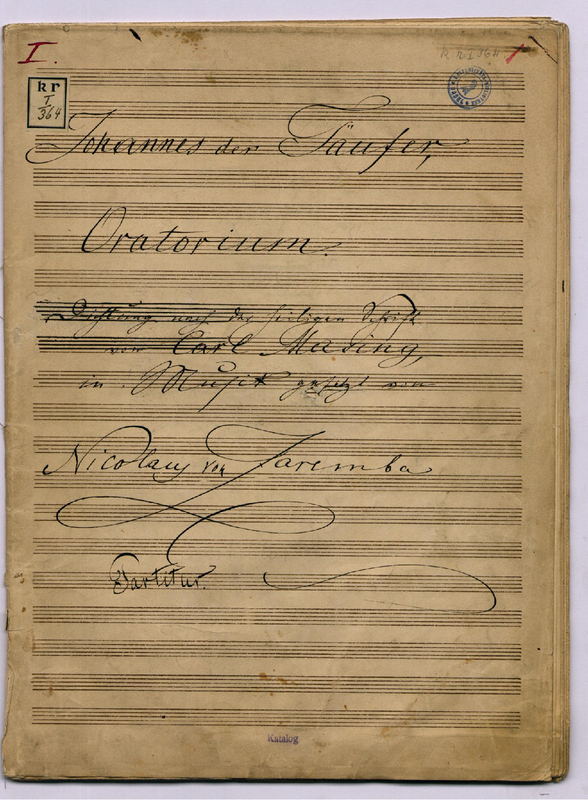 I.
R r I 364
kr
I
364
Johannes der Täufer,
Oratorium.
Dichtung nach der heiligen Schrift
von Carl Masing,
in Musik gesetzt von
Nicolaus von Zaremba
Partitur.
Katalog